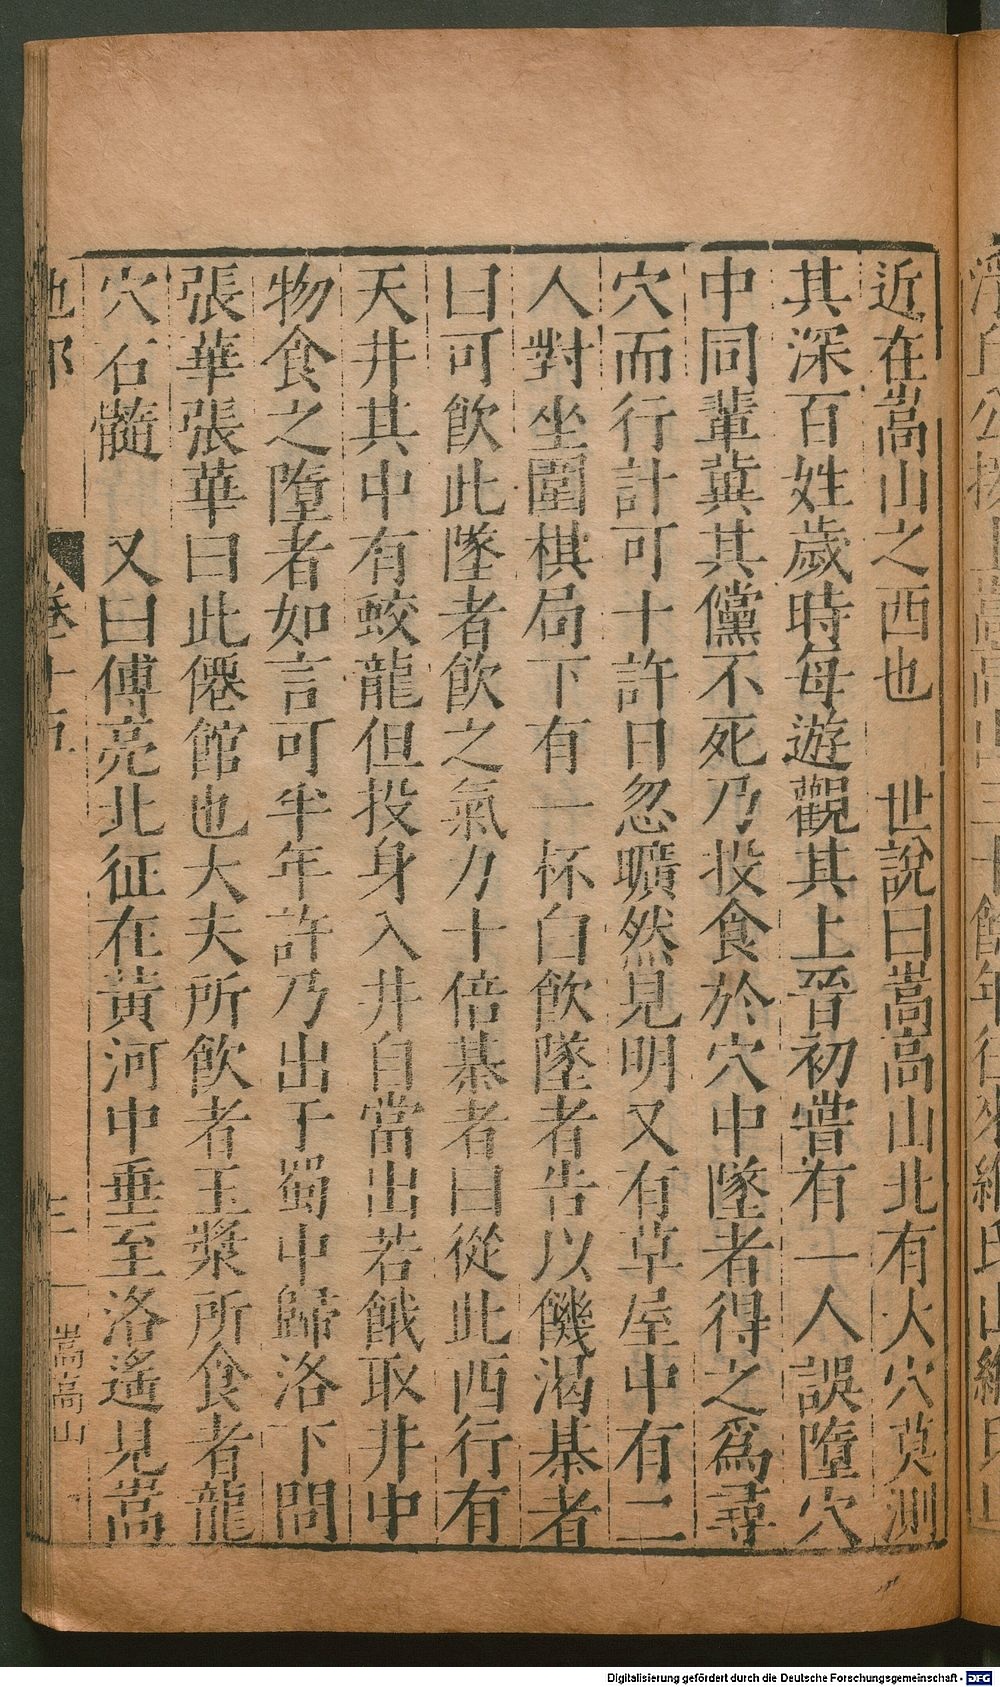 近在嵩山之西也　世說曰嵩高山北有大穴莫測
其深百姓歲時每遊觀其上晉初嘗有一人誤墮穴
中同輩冀其儻不死乃投食於穴中墜者得之爲尋
穴而行計可十許日忽曠然見明又有草屋中有二
人對坐圍棋局下有一杯白飲墜者告以饑渴棊者
曰可飲此墜者飲之氣力十倍棊者曰從此西行有
天井其中有蛟龍但投身入井自當出若餓取井中
物食之墮者如言可半年許乃出于蜀中歸洛下問
張華張華曰此僊館也大夫所飲者玉漿所食者龍
穴石髓　又曰傅亮北征在黃河中垂至洛遙見嵩
地部　卷十五　三　嵩高山
Digitalisierung gefördert durch die Deutsche Forschungsgemeinschaft - DFG